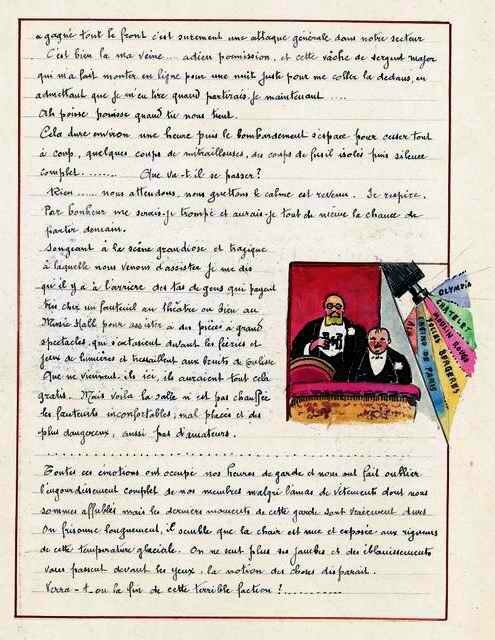 a gagné tout le front c'est surement une attaque générale dans notre secteur
C'est bien la ma veine.... adieu permission, et cette vache de sergent major
qui m'a fait monter en ligne pour une nuit juste pour me coller la dedans, en
admettant que je m'en tire quand partirais-je maintenant ....
Ah poisse poisse quand tu nous tient.
Cela dure environ une heure puis le bombardement s'espace pour cesser tout
à coup, quelques coups de mitrailleuses, des coups de fusil isolés puis silence
complet. ....... Que va-t-il se passer ?
Rien ...... nous attendons, nous guettons le calme est revenu. Je respire.
Par bonheur me serais-je trompé et aurais-je tout de même la chance de
partir demain.
Songeant à la scène grandiose et tragique
à laquelle nous venons d'assister je me dis
qu'il y a à l'arrière des tas de gens qui payent
très cher un fauteuil au théâtre ou bien au
Music Hall pour assister à des pièces à grand
spectacles, qui s'extasient devant les féeries et
jeux de lumières et tressaillent aux bruits de coulisse
Que ne viennent-ils ici, ils auraient tout cela
gratis. Mais voila la salle n'est pas chauffée
les fauteuils inconfortables, mal placés et des
plus dangereux, aussi pas d'amateurs.
OLYMPIA
CHATELET
MOULIN ROUGE
FOLIES BERGERES
CASINO DE PARIS
Toutes ces emotions ont occupé nos heures de garde et nous ont fait oublier
l'engourdissement complet de nos membres malgré l'amas de vêtements dont nous
sommes affublés mais les derniers moments de cette garde sont vraiment durs.
On frisonne longuement, il semble que la chair est nue et exposée aux rigueurs
de cette température glaciale. On ne sent plus ses jambes et des éblouissements
vous passent devant les yeux, la notion des choses disparait.
Verra-t-on la fin de cette terrible faction ? ............